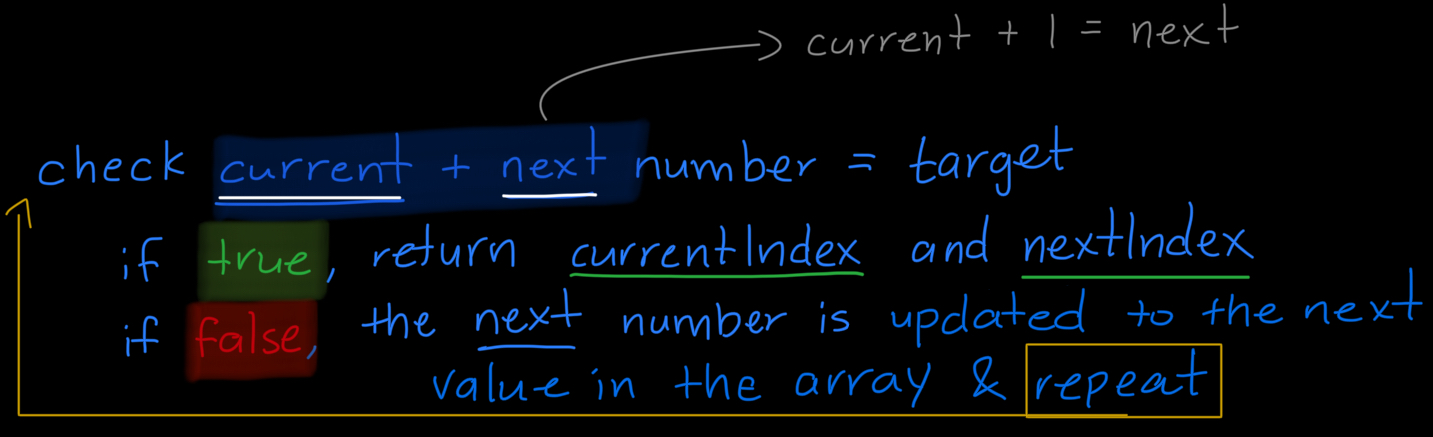 current + 1 = next
check current + next number = target
if true, return currentIndex and nextIndex
if false, the next number is updated to the next
value in the array & repeat